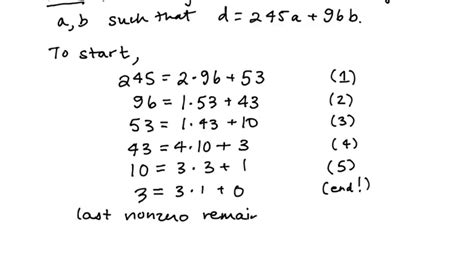 a, b such that d = 245a + 96b.
To start,
245 = 2·96 + 53 (1)
96 = 1·53 + 43 (2)
53 = 1·43 + 10 (3)
43 = 4·10 + 3 (4)
10 = 3·3 + 1 (5)
3 = 3·1 + 0 (end!)
last nonzero remain